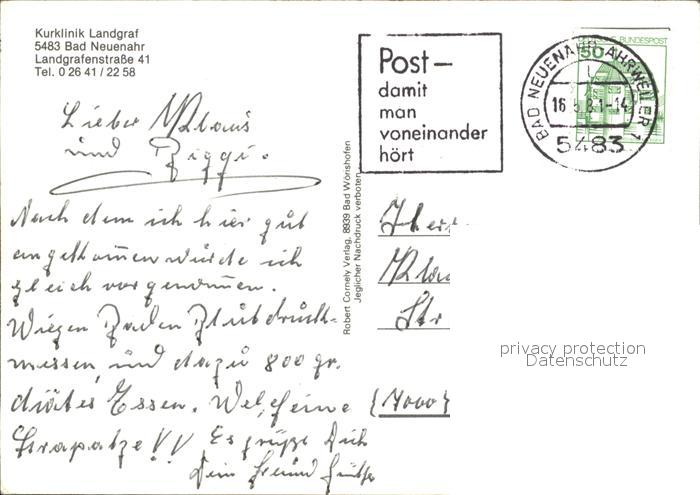 Kurklinik Landgraf
5483 Bad Neuenahr
Landgrafenstraße 41
Tel. 0 26 41 / 22 58
Post –
damit
man
voneinander
hört
BAD NEUENAHR-AHRWEILER 1
16.5.81-14
5483
50
DEUTSCHE BUNDESPOST
Lieber Klaus
und Ziggi.
Nach dem ich hier gut
angekommen würde ich
gleich vorgenommen.
Wiegen Baden Blutdruck-
messen, und dazu 800 gr.
diätes Essen. Welch eine
Strapatze!! Es grüßt Dich
Dein Freund Günther
Robert Cornely Verlag, 8939 Bad Wörishofen
Jeglicher Nachdruck verboten
Herr
Klau
Str
(4000)
privacy protection
Datenschutz